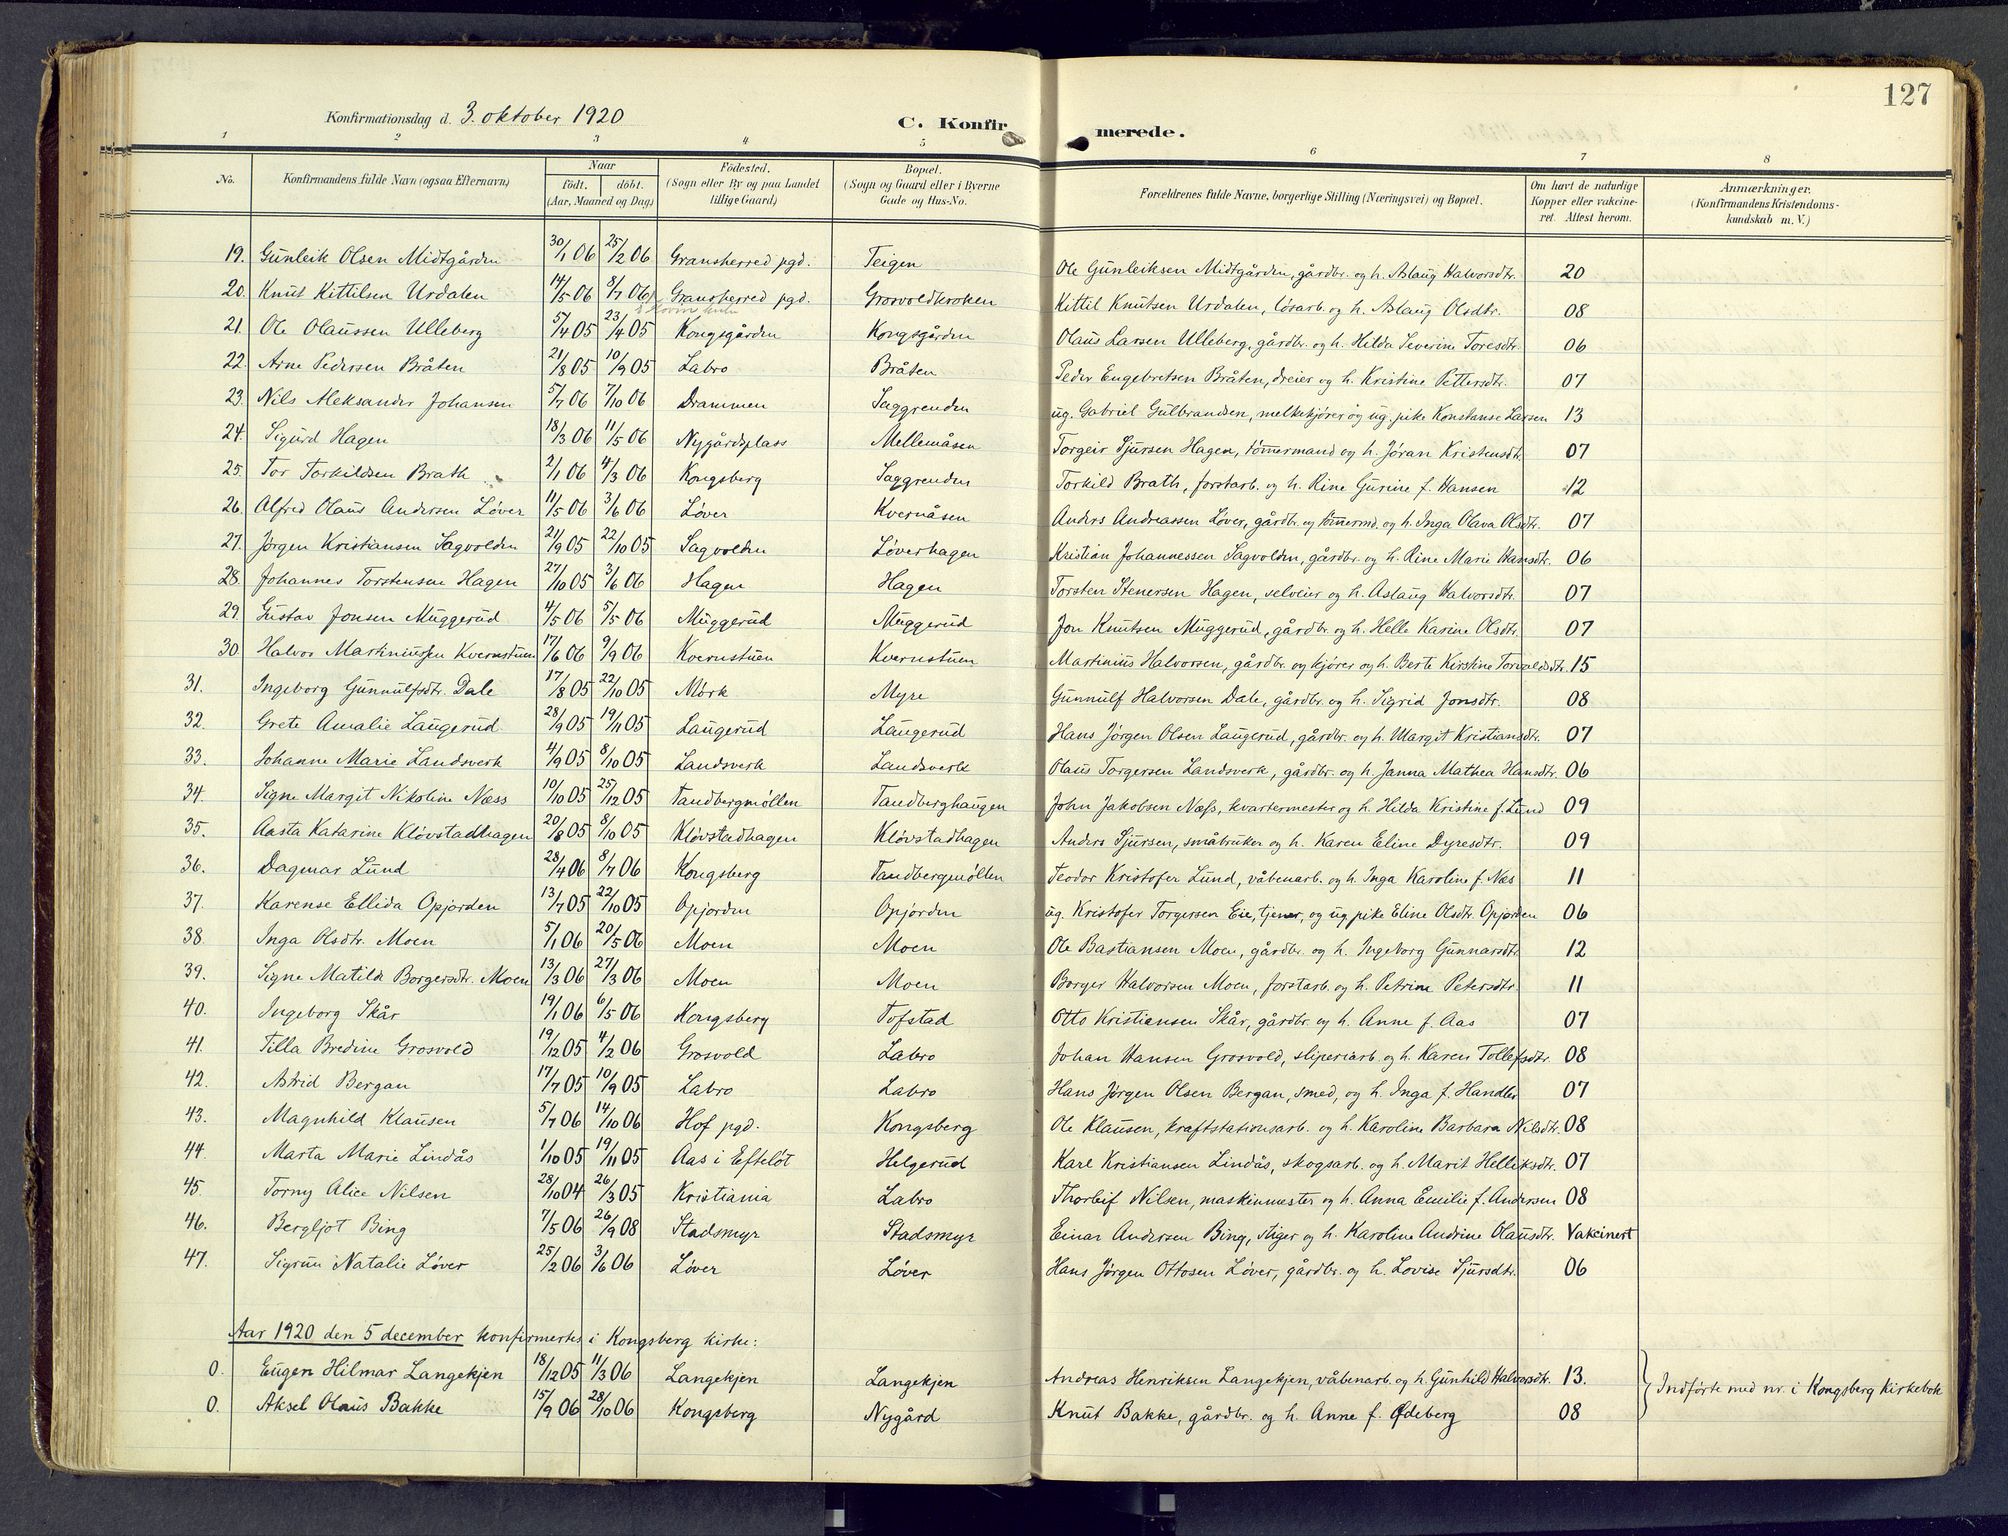 127
Konfirmationsdag d. 3. oktober 1920 C. Konfirmerede.
1 2 3 4 5 6 7 8
No. Konfirmandens fulde Navn (ogsaa Efternavn) Naar födt. döbt. (Aar, Maaned og Dag) Födested. (Sogn eller By og paa Landet tillige Gaard) Bopæl. (Sogn og Gaard eller i Byerne Gade og Hus-No. Forældrenes fulde Navne, borgerlige Stilling (Næringsvei) og Bopæl. Om havt de naturlige Kopper eller vakcineret. Attest herom. Anmærkninger. (Konfirmandens Kristendomskundskab m. V.)
19. Gunleik Olsen Midtgården 30/1 06 25/2 06 Gransherred pgd. Teigen Ole Gunleiksen Midtgården, gårdbr. og h. Aslaug Halvorsdtr. 20
20. Knut Kittilsen Urdalen 14/5 06 8/7 06 Gransherred pgd. Grosvoldkroken Kittil Knutsen Urdalen, løsarb. og h. Aslaug Olsdtr. 08
21. Ole Olaussen Ulleberg 5/4 05 23/4 05 Kongsgården Kongsgården Olaus Larsen Ulleberg, gårdbr. og h. Hilda Severine Toresdtr. 06
22. Arne Pedersen Bråten 21/8 05 10/9 05 Labro Bråten Peder Engebretsen Bråten, dreier og h. Kristine Pettersdtr. 07
23. Nils Aleksander Johansen 5/7 06 7/10 06 Drammen Saggrenden ug. Gabriel Gulbrandsen, melkekjører og ug. pike Konstanse Larsen 13
24. Sigurd Hagen 18/3 06 11/5 06 Nygårdsplass Mellemåsen Torgeir Sjursen Hagen, tømmermand og h. Jøran Kristensdtr. 07
25. Tor Torkildsen Brath 2/1 06 4/3 06 Kongsberg Saggrenden Torkild Brath, forstarb. og h. Rine Gurine f. Hansen 12
26. Alfred Olaus Andersen Løver 11/5 06 3/6 06 Løver Kvernåsen Anders Andreassen Løver, gårdbr. og tømmermd. og h. Inga Olava Olsdtr. 07
27. Jørgen Kristiansen Sagvolden 21/9 05 22/10 05 Sagvolden Løverhagen Kristian Johannessen Sagvolden, gårdbr. og h. Rine Marie Hansdtr. 06
28. Johannes Torstensen Hagen 27/10 05 3/6 06 Hagen Hagen Torsten Stenersen Hagen, selveier og h. Aslaug Halvorsdtr. 07
29. Gustav Jonsen Muggerud 4/5 06 5/5 06 Muggerud Muggerud Jon Knutsen Muggerud, gårdbr. og h. Helle Karine Olsdtr. 07
30. Halvor Martiniussen Kvernstuen 17/6 06 9/9 06 Kvernstuen Kvernstuen Martinius Halvorsen, gårdbr. og kjører og h. Berte Kirstine Torvaldsdtr. 15
31. Ingeborg Gunnulfsdtr. Dale 17/8 05 22/10 05 Mørk Myre Gunnulf Halvorsen Dale, gårdbr. og h. Sigrid Jonsdtr. 08
32. Grete Amalie Laugerud 28/9 05 19/11 05 Laugerud Laugerud Hans Jørgen Olsen Laugerud, gårdbr. og h. Margit Kristiansdtr. 07
33. Johanne Marie Landsverk 4/9 05 8/10 05 Landsverk Landsverk Olaus Torgersen Landsverk, gårdbr. og h. Janna Mathea Hansdtr. 06
34. Signe Margit Nikoline Næss 10/10 05 25/12 05 Tandbergmøllen Tandberghaugen John Jakobsen Næss, kvartermester og h. Hilda Kristine f. Lund 09
35. Aasta Katarine Kløvstadhagen 20/8 05 8/10 05 Kløvstadhagen Kløvstadhagen Anders Sjursen, småbruker og h. Karen Eline Dyresdtr. 09
36. Dagmar Lund 28/4 06 8/7 06 Kongsberg Tandbergmøllen Teodor Kristofer Lund, våbenarb. og h. Inga Karoline f. Næs 11
37. Karense Ellida Opjorden 13/7 05 22/10 05 Opjorden Opjorden ug. Kristofer Torgersen Eie, tjener, og ug. pike Eline Olsdtr. Opjorden 06
38. Inga Olsdtr. Moen 5/1 06 20/5 06 Moen Moen Ole Bastiansen Moen, gårdbr. og h. Ingeborg Gunnarsdtr. 12
39. Signe Matilde Borgersdtr. Moen 13/3 06 27/3 06 Moen Moen Borger Halvorsen Moen, forstarb. og h. Petrine Petersdtr. 11
40. Ingeborg Skår 19/1 06 6/5 06 Kongsberg Tofstad Otto Kristiansen Skår, gårdbr. og h. Anne f. Aas 07
41. Tilla Bredine Grosvold 19/12 05 4/2 06 Grosvold Labro Johan Hansen Grosvold, sliperiarb. og h. Karen Tollefsdtr. 08
42. Astrid Bergan 17/7 05 10/9 05 Labro Labro Hans Jørgen Olsen Bergan, smed, og h. Inga f. Handler 07
43. Magnhild Klausen 5/7 06 14/10 06 Hof pgd. Kongsberg Ole Klausen, kraftstationsarb. og h. Karoline Barbara Nilsdtr. 08
44. Marta Marie Lindås 1/10 05 19/11 05 Aas i Efteløt Helgerud Karl Kristiansen Lindås, skogsarb. og h. Marit Helliksdtr. 07
45. Torny Alice Nilsen 28/10 04 26/3 05 Kristiania Labro Thorleif Nilsen, maskinmester og h. Anna Emilie f. Andersen 08
46. Bergljot Bing 7/5 06 26/9 08 Stadsmyr Stadsmyr Einar Andersen Bing, stiger og h. Karoline Andrine Olausdtr. Vakcinert
47. Sigrun Natalie Løver 25/2 06 3/6 06 Løver Løver Hans Jørgen Ottosen Løver, gårdbr. og h. Lovise Sjursdtr. 06
Aar 1920 den 5 december konfirmertes i Kongsberg kirke:
0. Eugen Hilmar Langekjen 18/12 05 11/3 06 Langekjen Langekjen Andreas Henriksen Langekjen, våbenarb. og h. Gunhild Halvorsdtr. 13. Indførte med nr. i Kongsberg kirkebok
0. Aksel Olaus Bakke 15/9 06 28/10 06 Kongsberg Nygård Knut Bakke, gårdbr. og h. Anne f. Ødeberg 08